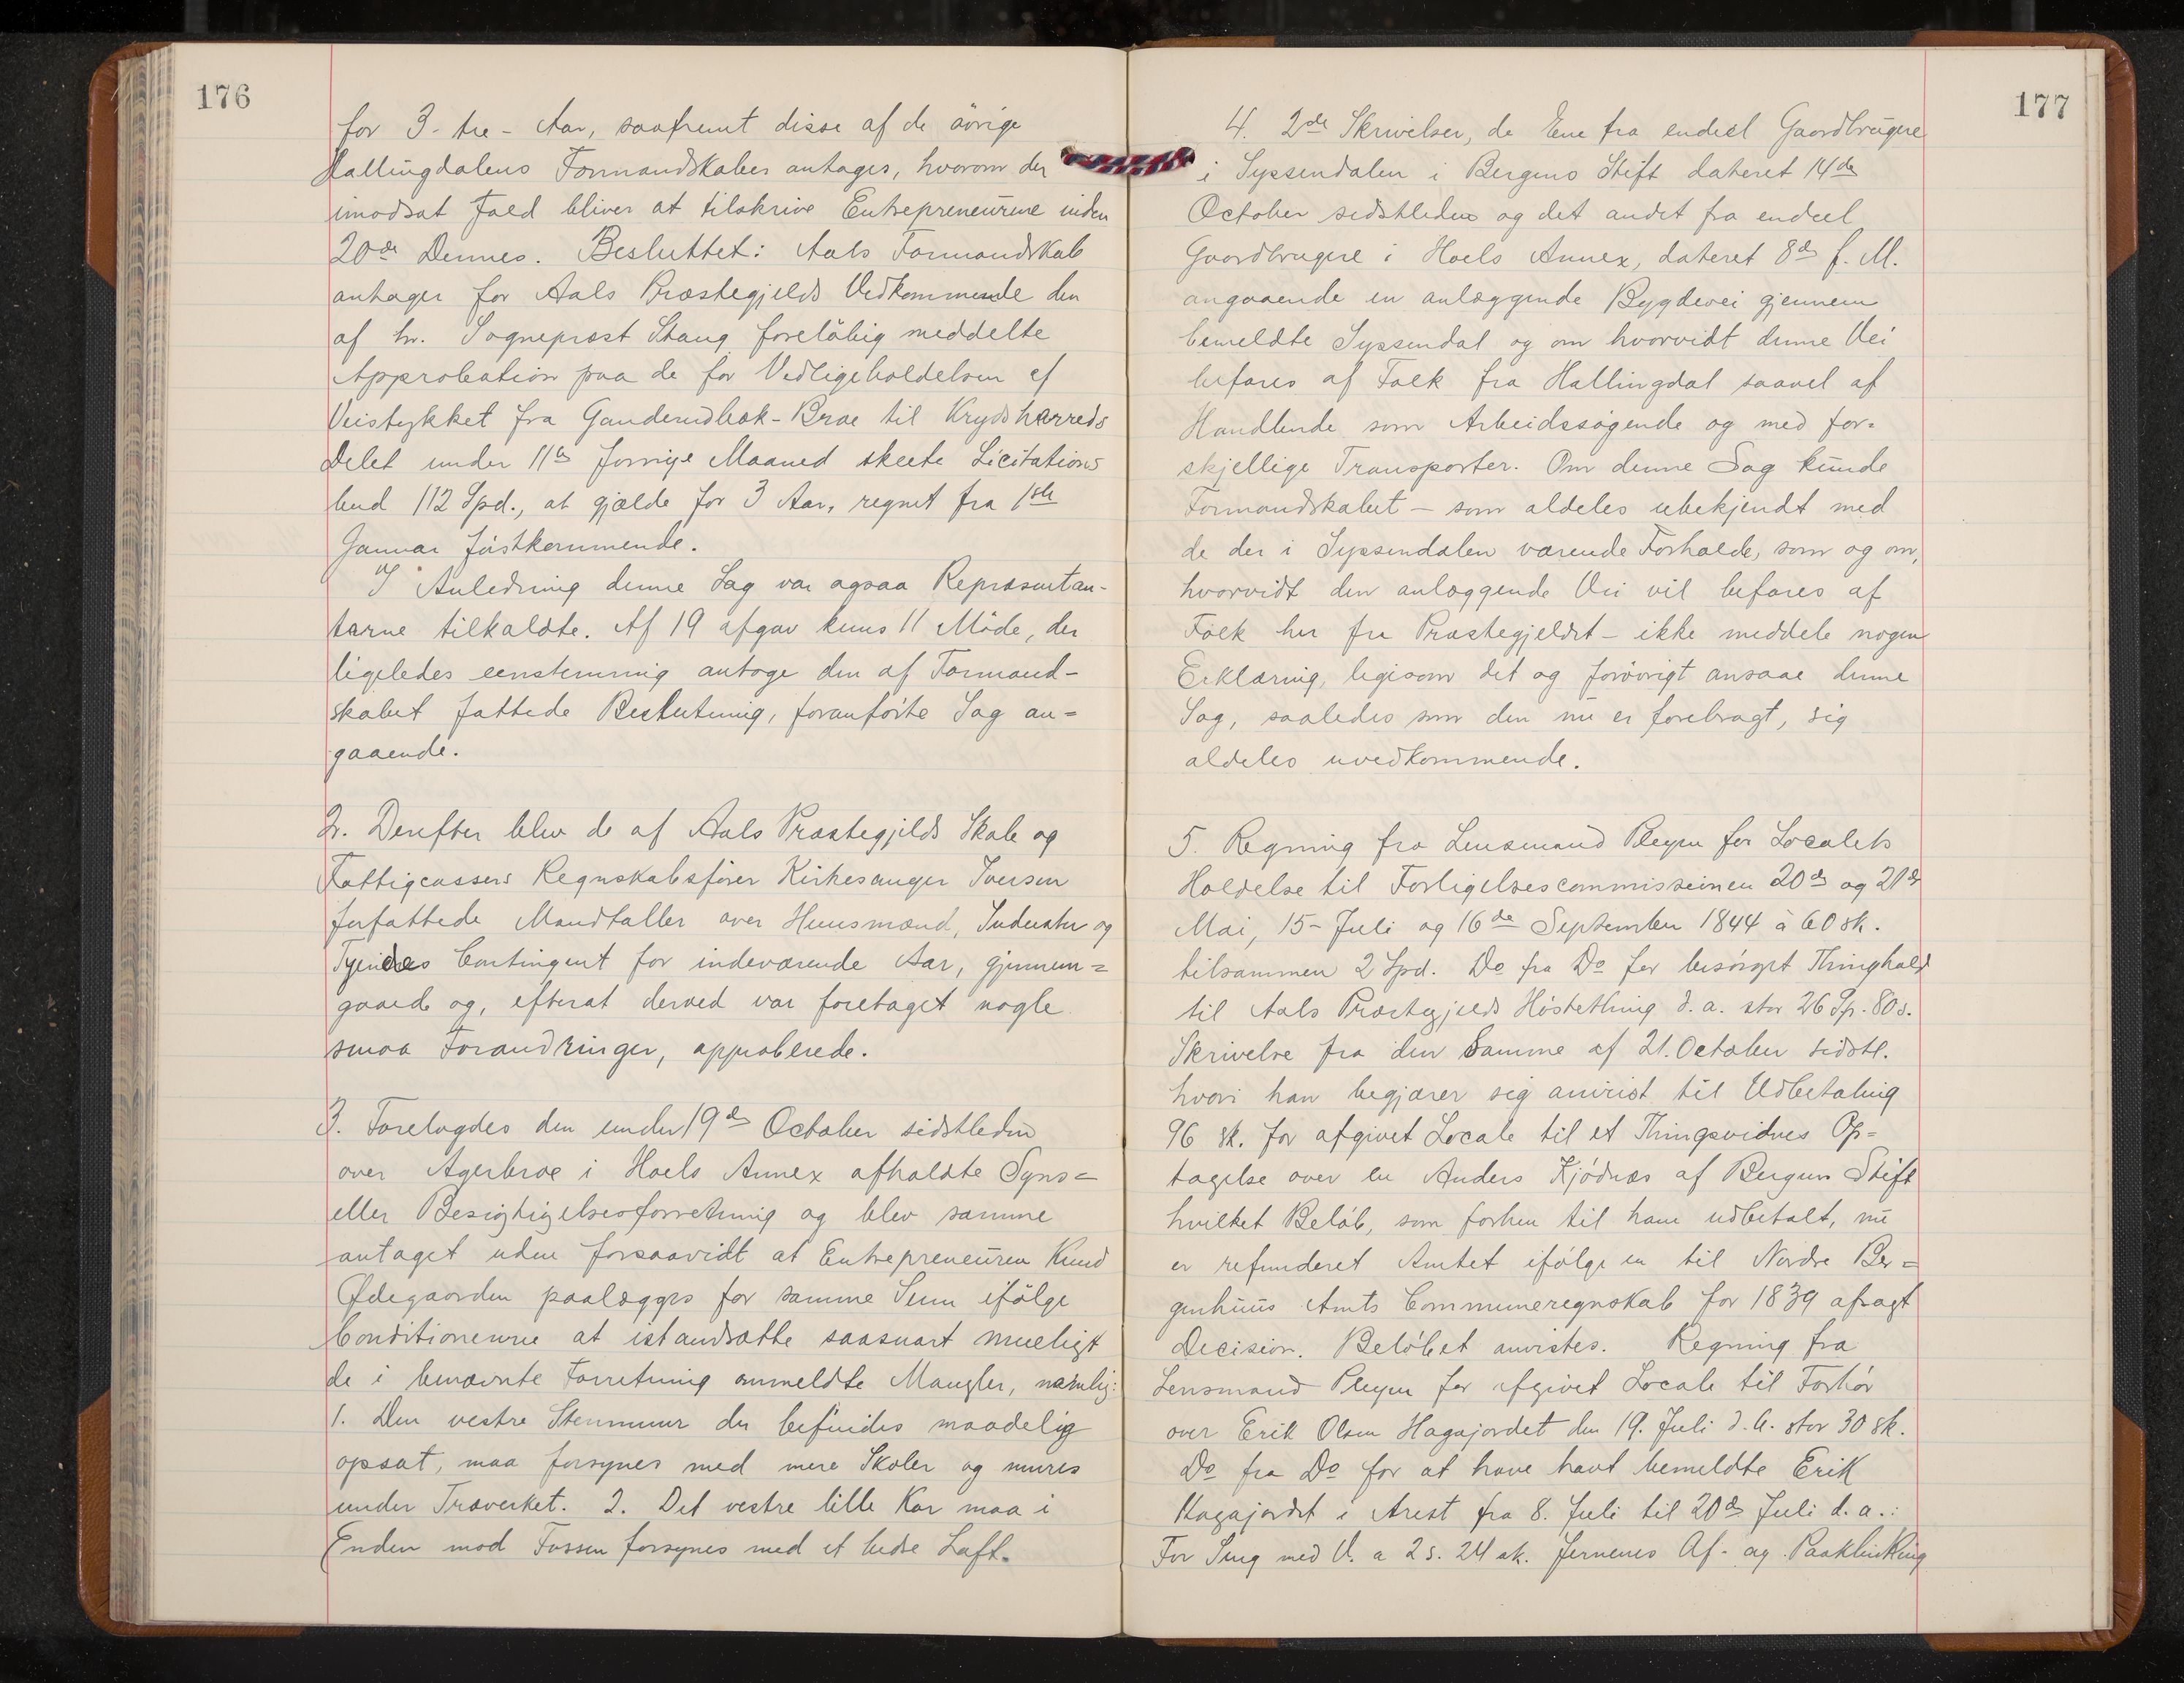 176
for 3 - tre - Aar, saafremt disse af de övrige
Hallingdalens Formandskaber antages, hvorom der
imodsat Fald bliver at tilskrive Entrepreneurene inden
20de Dennes. Besluttet: Aals Formandskab
antager for Aals Præstegjelds Vedkommende den
af hr. Sogneprest Stang foreløbig meddelte
Approbation paa de for Vedligeholdelsen af
Veistykket fra Ganderudbæk-Broe til Krydsherreds
Delet under 11te forrige Maaned skeete Licitations
bud 112 Spd., at gjælde for 3 Aar, regnet fra 1ste
Januar førstkommende.
I Anledning denne Sag var ogsaa Repræsentan-
tarne tilkaldte. Af 19 afgav kuns 11 Møde, der
ligeledes eenstemmig antoge den af Formand-
skabet fattede Beslutning, foranførte Sag an=
gaaende.
2. Derefter blev de af Aals Præstegjelds Skole og
Fattigcassers Regnskabsfører Kirkesanger Iversen
forfattede Mandtaller over Huusmænd, Inderster og
Tyendes Contingent for indeværende Aar, gjennem=
gaaede og, efterat derved var foretaget nogle
smaa Forandringer, approberede.
3. Forelagdes den under 19de October sidstleden
over Agerbroe i Hoels Annex afholdte Syns=
eller Besigtigelsesforretning og blev samme
antaget uden forsaavidt at Entrepreneuren Knud
Ødegaarden paalægges for samme Sum ifølge
Conditionerne at istandsætte saasnart mueligt
de i benævnte Forretning ommeldte Mangler, nemlig:
1. Den vestre Steenmuur der befindes maadelig
opsat, maa forsynes med mere Skoler og mures
under Træverket. 2. Det vestre lille Kar maa i
Enden mod Fossen forsynes med et bedre Laft.
177
4. 2de Skrivelser, de Ene fra endeel Gaardbrugere
i Syssendalen i Bergens Stift dateret 14de
October sidstleden og det andet fra endeel
Gaardbrugere i Hoels Annex, dateret 8de f. M.
angaaende en anlæggende Bygdevei gjennem
bemeldte Syssendal og om hvorvidt denne Vei
befares af Folk fra Hallingdal saavel af
Handlende som Arbeidssøgende og med for=
skjellige Transporter. Om denne Sag kunde
Formandskabet - som aldeles ubekjendt med
de der i Syssendalen værende Forholde, som og om,
hvorvidt den anlæggende Vei vil befares af
Folk her fra Præstegjeldet - ikke meddele nogen
Erklæring, legisom det og forøvrigt ansaae denne
Sag, saaledes som den nu er forebragt, sig
aldeles uvedkommende.
5. Regning fra Lensmand Pleym for Localets
Holdelse til Forligelsescommissionen 20de og 21de
Mai, 15- Juli og 16de September 1844 à 60 sk.
tilsammen 2 Spd. Do fra Do for besørget Thinghold
til Aals Præstegjelds Høstething d. a. stor 26 Sp. 80 s.
Skrivelse fra den Samme af 21. October sidstl.
hvori han begjærer sig anvist til Udbetaling
96 sk. for afgivet Locale til et Thingsvidnes Op=
tagelse over en Anders Kjødnæs af Bergens Stift
hvilket Beløb, som forhen til ham udbetalt, nu
er refunderet Amtet ifølge en til Nordre Ber=
genhuus Amts Communeregnskab for 1839 afsagt
Decision. Beløbet anvistes. Regning fra
Lensmand Pleym for afgivet Locale til Forhør
over Erik Olsen Hagajordet den 19. Juli d. A. stor 30 sk.
Do fra Do for at have havt bemeldte Erik
Hagajordet i Arest fra 8. Juli til 20de Juli d. a.:
For Seng med V. a 2 s. 24 sk. Jernenes Af- og Paaklinking